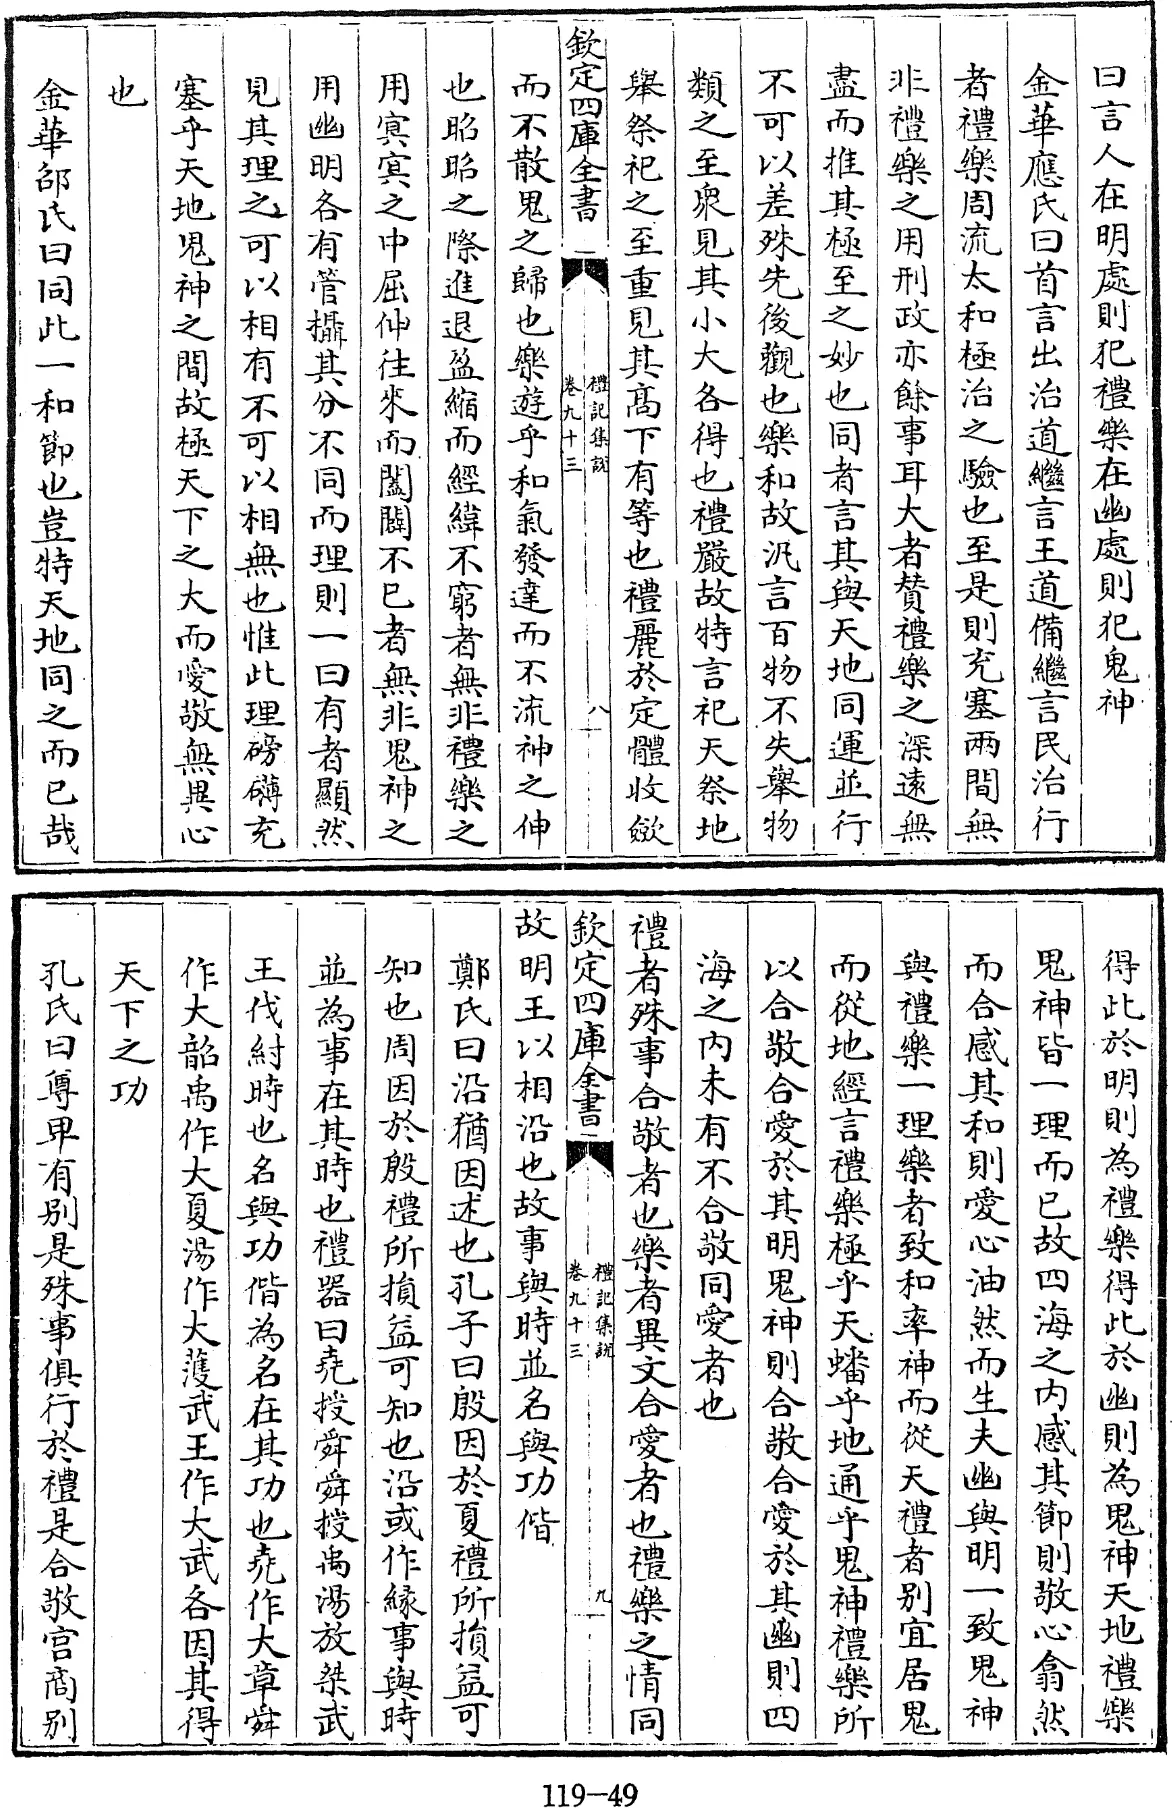 曰言人在明處則犯禮樂在幽處則犯鬼神
金華應氏曰首言出治道繼言王道備繼言民治行
者禮樂周流太和極治之驗也至是則充塞兩間無
非禮樂之用刑政亦餘事耳大者賛禮樂之深遠無
盡而推其極至之妙也同者言其與天地同運並行
不可以差殊先後觀也樂和故汎言百物不失舉物
類之至衆見其小大各得也禮嚴故特言祀天祭地
舉祭祀之至重見其髙下有等也禮麗於定體收斂
欽定四庫全書
禮記集說
卷九十三
八
而不散鬼之歸也樂遊乎和氣發達而不流神之伸
也昭昭之際進退盈縮而經緯不窮者無非禮樂之
用冥冥之中屈伸往來而闔闢不已者無非鬼神之
用幽明各有管攝其分不同而理則一曰有者顯然
見其理之可以相有不可以相無也惟此理磅礴充
塞乎天地鬼神之間故極天下之大而愛敬無異心
也
金華邵氏曰同此一和節也豈特天地同之而已哉
得此於明則為禮樂得此於幽則為鬼神天地禮樂
鬼神皆一理而已故四海之内感其節則敬心翕然
而合感其和則愛心油然而生夫幽與明一致鬼神
與禮樂一理樂者致和率神而從天禮者别宜居鬼
而從地經言禮樂極乎天蟠乎地通乎鬼神禮樂所
以合敬合愛於其明鬼神則合敬合愛於其幽則四
海之内未有不合敬同愛者也
禮者殊事合敬者也樂者異文合愛者也禮樂之情同
欽定四庫全書
禮記集說
卷九十三
九
故明王以相沿也故事與時並名與功偕
鄭氏曰沿猶因述也孔子曰殷因於夏禮所損益可
知也周因於殷禮所損益可知也沿或作緣事與時
並為事在其時也禮器曰堯授舜舜授禹湯放桀武
王伐紂時也名與功偕為名在其功也堯作大章舜
作大韶禹作大夏湯作大濩武王作大武各因其得
天下之功
孔氏曰尊卑有别是殊事俱行於禮是合敬宫商别
119-49